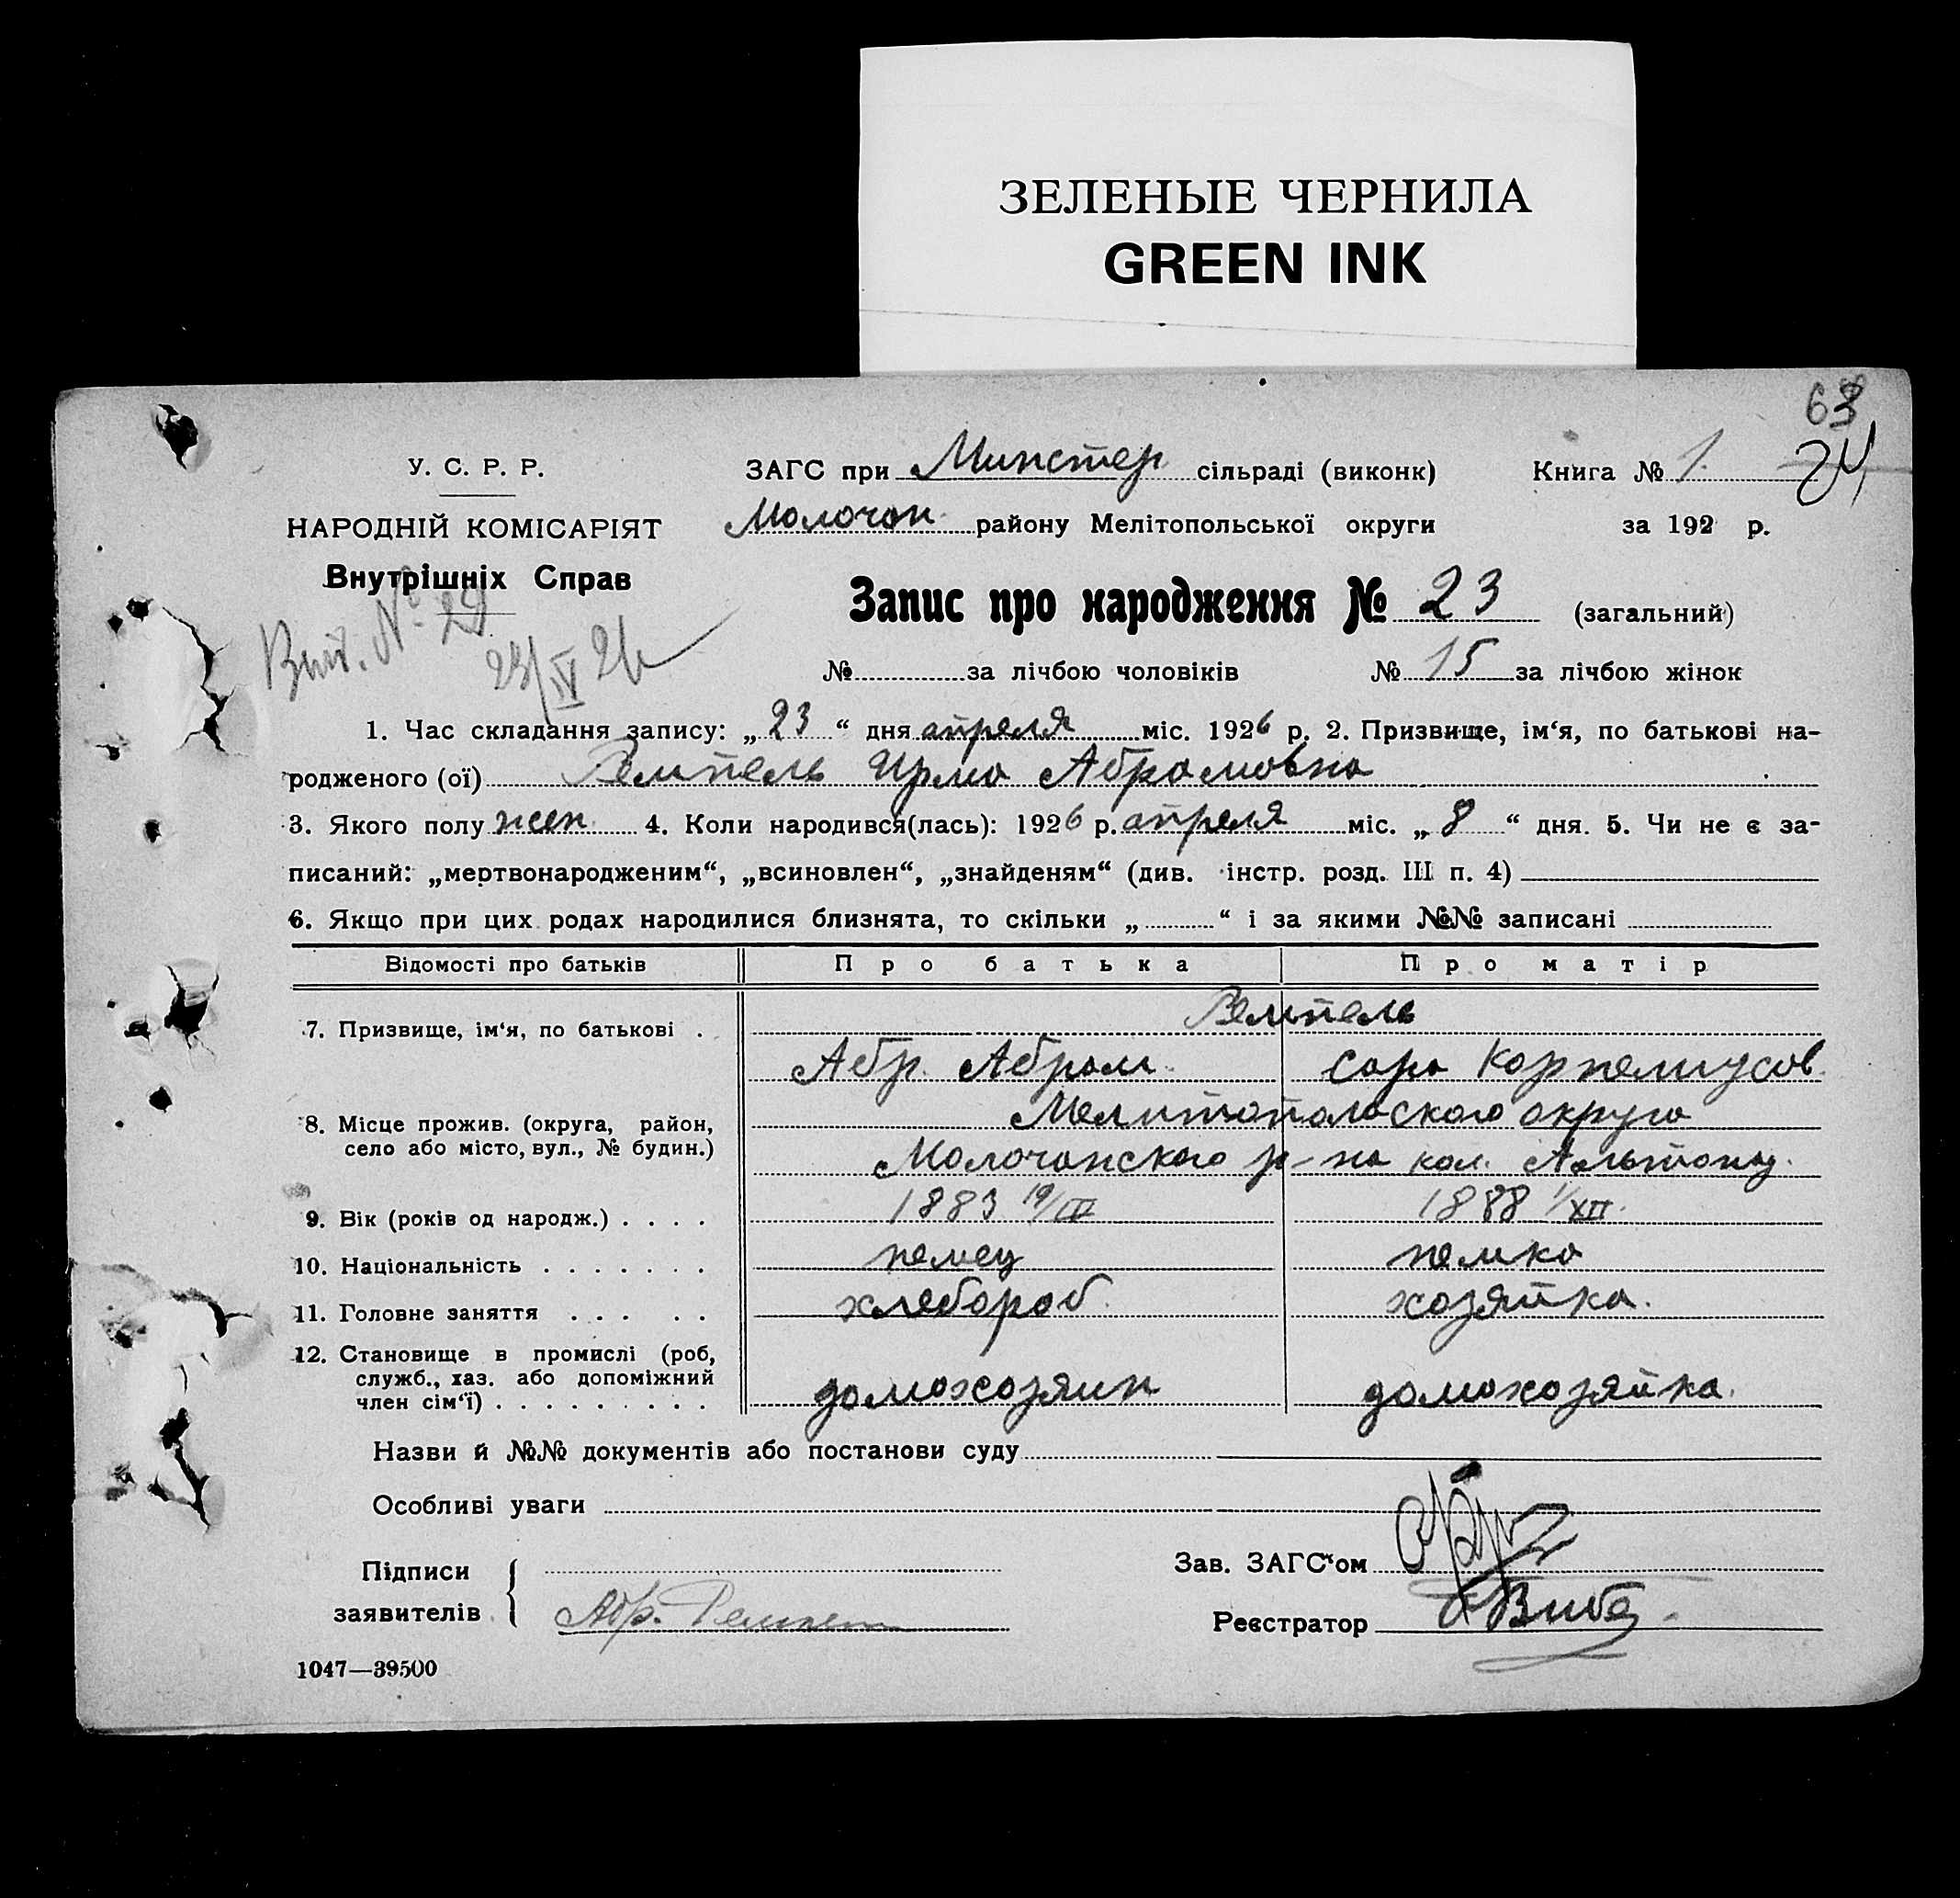 ЗЕЛЕНЫЕ ЧЕРНИЛА
GREEN INK
63
24
У. С. Р. Р.
ЗАГС при Минстер сільраді (виконк) Книга № 1.
НАРОДНІЙ КОМІСАРІЯТ
Молочан. району Мелітопольської округи за 192 р.
Внутрішніх Справ
Запис про народження № 23 (загальний)
Вид. № 29
23/IV 26
№ за лічбою чоловіків № 15 за лічбою жінок
1. Час складання запису: „ 23 “ дня апреля міс. 1926 р. 2. Призвище, ім‘я, по батькові на-
родженого (ої) Ремпель Ирма Абрамовна
3. Якого полу жен. 4. Коли народився(лась): 1926 р. апреля міс. „ 8 “ дня. 5. Чи не є за-
писаний: „мертвонародженим“, „всиновлен“, „знайденям“ (див. інстр. розд. III п. 4)
6. Якщо при цих родах народилися близнята, то скільки „ “ і за якими №№ записані
Відомості про батьків Про батька Про матір
7. Призвище, ім‘я, по батькові . Ремпель
Абр. Абрам. Сара Корнелиусов.
8. Місце прожив. (округа, район, Мелитопольского округа
село або місто, вул., № будин.) Молочанского р-на кол. Альтонау.
9. Вік (років од народж.) . . . . 1883 19/IV 1888 1/XII.
10. Національність . . . . . . . немец немка
11. Головне заняття . . . . . хлебороб. хозяйка.
12. Становище в промислі (роб,
служб., хаз. або допоміжний
член сім‘ї) . . . . . . . . . домохозяин домохозяйка.
Назви й №№ документів або постанови суду
Особливі уваги
Підписи Зав. ЗАГС‘ом
заявителів Абр. Ремпель Реєстратор Вибе
1047—39500